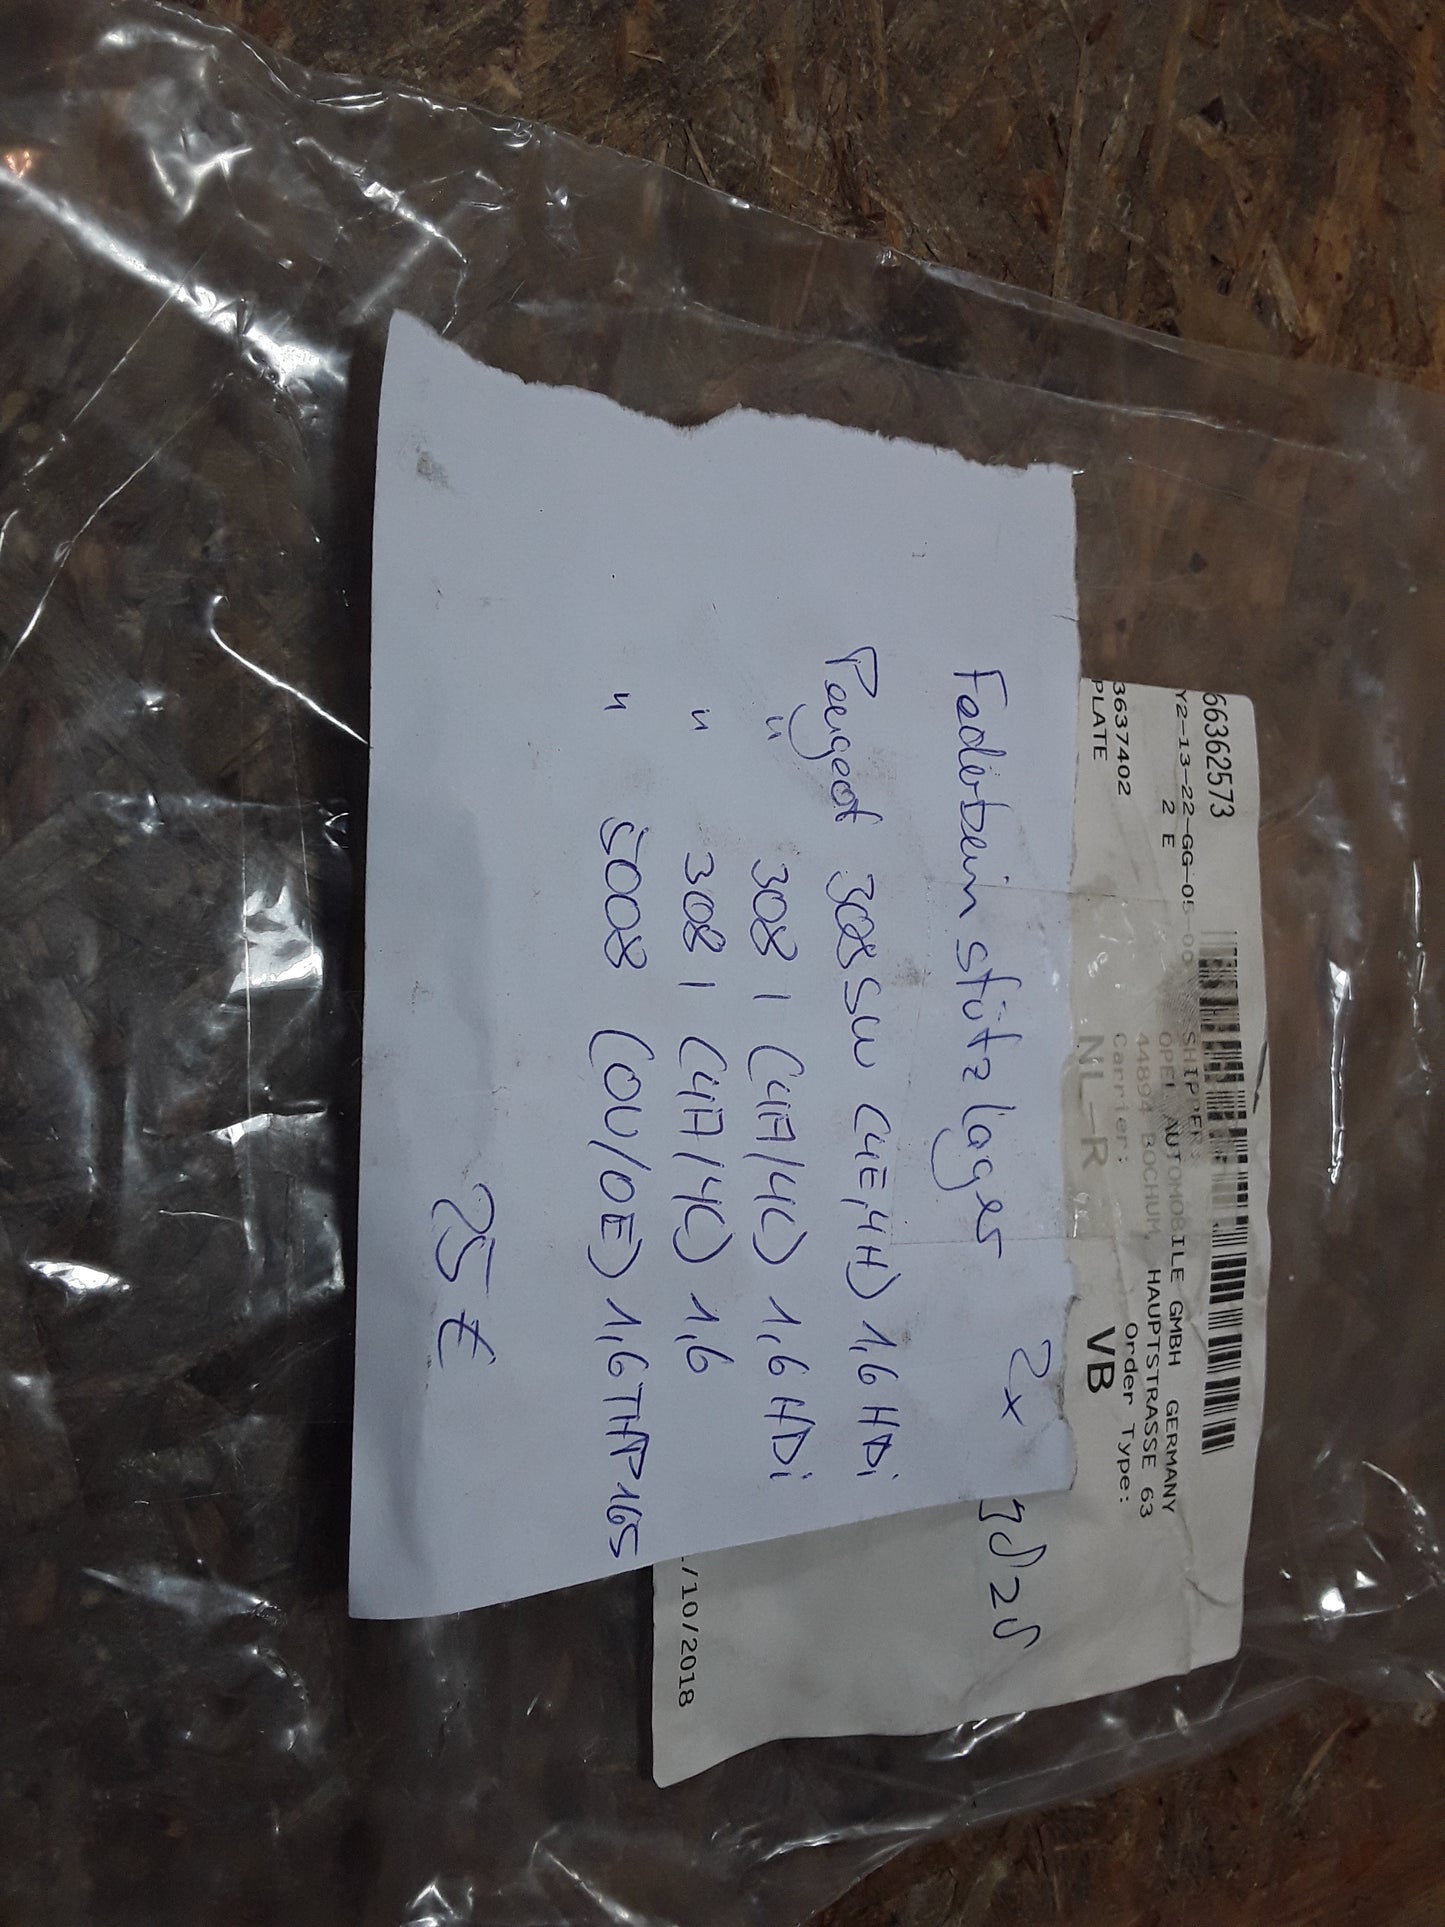 66362573
Y2-13-22-GG-05-00
2 E
3637402
PLATE
SHIPPER:
OPEL AUTOMOBILE GMBH GERMANY
44894 BOCHUM, HAUPTSTRASSE 63
Carrier: Order Type:
NL-R VB
2x
Federbein stütz lager
Peugeot 308SW (4E,4H) 1,6 HDi
" 308 I (4A/4C) 1,6 HDi
" 308 I (4A/4C) 1,6
" 5008 (0U/0E) 1,6 THP 165
25 €
/10/2018